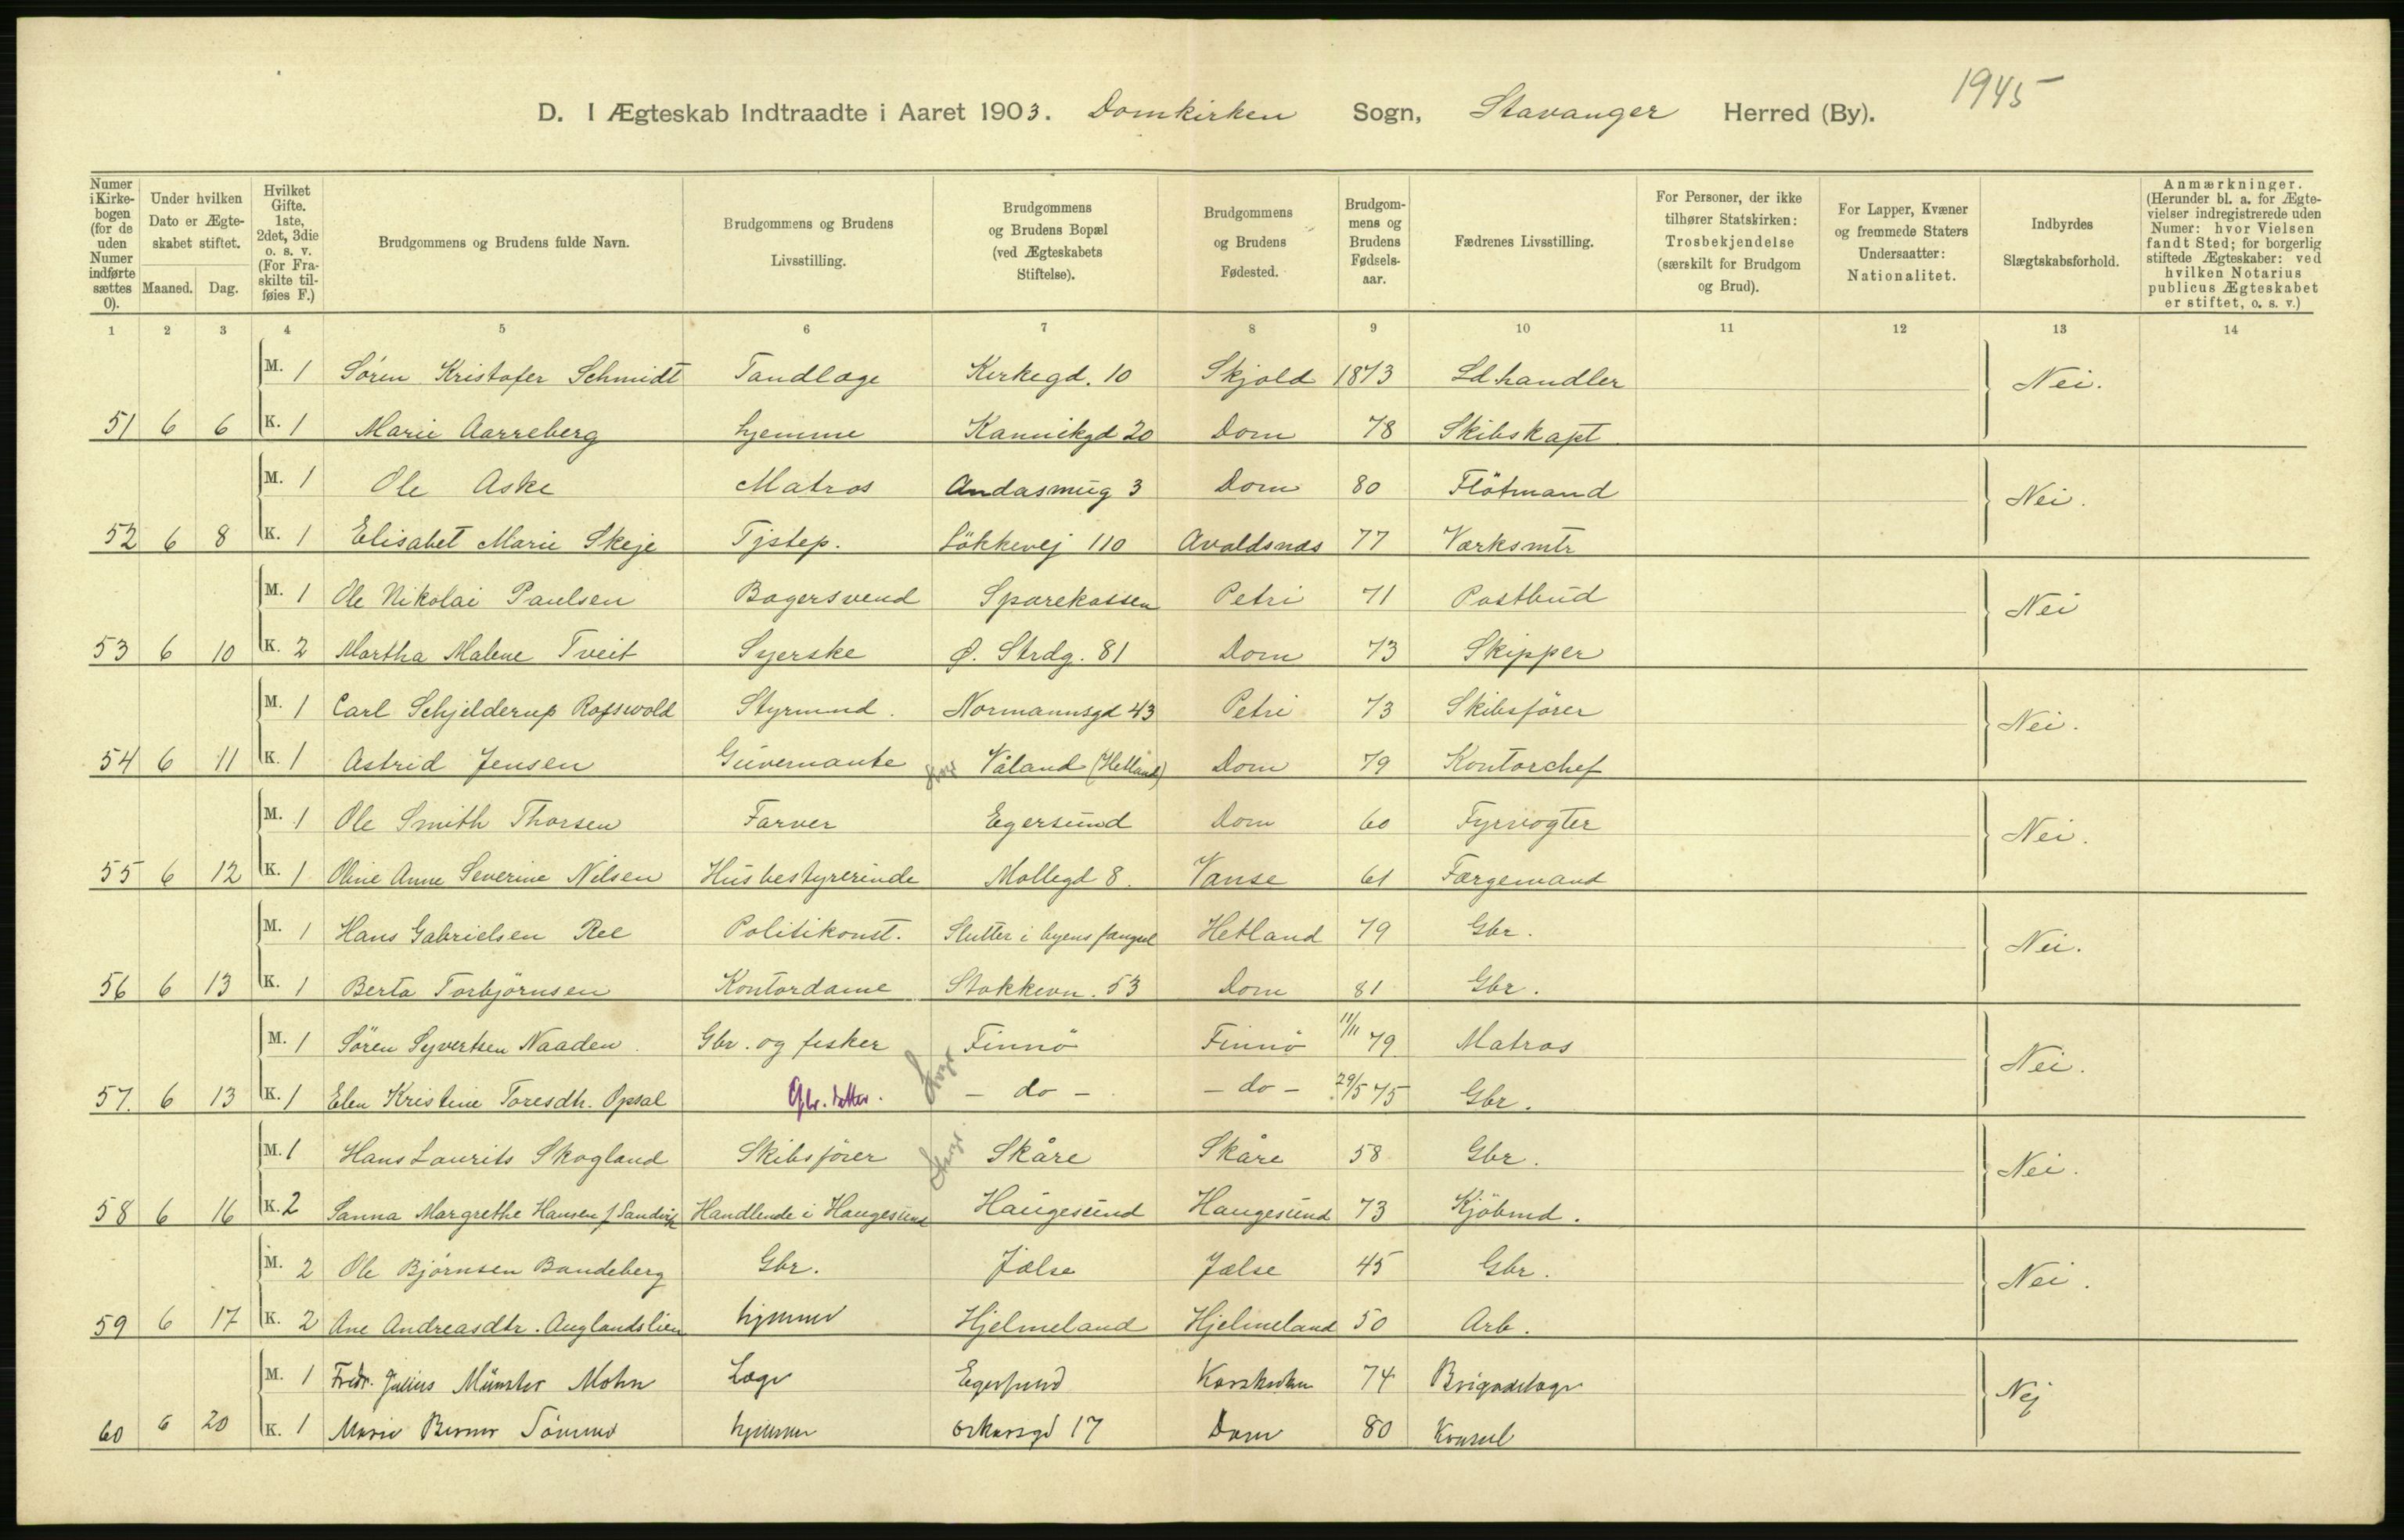 1945
D. I Ægteskab Indtraadte i Aaret 1903. Domkirken Sogn, Stavanger Herred (By).
Numer i Kirke-bogen (for de uden Numer indførte sættes 0). | Under hvilken Dato er Ægte-skabet stiftet. Maaned. Dag. | Hvilket Gifte. 1ste, 2det, 3die o. s. v. (For Fra-skilte til-føies F.) | Brudgommens og Brudens fulde Navn. | Brudgommens og Brudens Livsstilling. | Brudgommens og Brudens Bopæl (ved Ægteskabets Stiftelse). | Brudgommens og Brudens Fødested. | Brudgom-mens og Brudens Fødsels-aar. | Fædrenes Livsstilling. | For Personer, der ikke tilhører Statskirken: Trosbekjendelse (særskilt for Brudgom og Brud). | For Lapper, Kvæner og fremmede Staters Undersaatter: Nationalitet. | Indbyrdes Slægtskabsforhold. | Anmærkninger. (Herunder bl. a. for Ægte-vielser indregistrerede uden Numer: hvor Vielsen fandt Sted; for borgerlig stiftede Ægteskaber: ved hvilken Notarius publicus Ægteskabet er stiftet, o. s. v.)
1 2 3 4 5 6 7 8 9 10 11 12 13 14
M. 1 Sören Kristofer Schmidt Tandlæge Kirkegd. 10 Skjold 1873 Ldhandler Nei.
51 6 6 K. 1 Marie Aarreberg hjemme Kannikgd 20 Dom 78 Skibskapt
M. 1 Ole Aske Matros Andasmug 3 Dom 80 Flötmand Nei.
52 6 8 K. 1 Elisabet Marie Skeje Tjstep. Lökkevej 110 Avaldsnæs 77 Værksmtr
M. 1 Ole Nikolai Paulsen Bagersvend Sparekassen Petri 71 Postbud Nei
53 6 10 K. 2 Martha Malene Tveit Syerske Ø. Strdg. 81 Dom 73 Skipper
M. 1 Carl Schjelderup Rofswold Styrmnd. Normannsgd 43 Petri 73 Skibsfører Nei.
54 6 11 K. 1 Astrid Jensen Guvernante Våland (Hetland) Dom 79 Kontorchef
M. 1 Ole Smith Thorsen Farver Egersund Dom 60 Fyrvogter Nei.
55 6 12 K. 1 Oline Anne Severine Nilsen Husbestyrerinde Møllegd 8. Vanse 61 Færgemand
M. 1 Hans Gabrielsen Ree Politikonst. Slutter i byens fængsel Hetland 79 Gbr. Nei.
56 6 13 K. 1 Berta Torbjørnsen Kontordame Stokkevn. 53 Dom 81 Gbr.
M. 1 Sören Syvertsen Naaden. Gbr. og fisker Finnö Finnö 11/11 79 Matros Nei.
57. 6 13 K. 1 Elen Kristine Toresdtr. Opsal Gbr. datter. - do - - do - 29/5 75 Gbr.
M. 1 Hans Laurits Skogland Skibsförer Skåre Skåre 58 Gbr. Nei.
58 6 16 K. 2 Sanna Margrethe Hansen f. Sandvik Handlende i Haugesund Haugesund Haugesund 73 Kjöbmd.
M. 2 Ole Bjørnsen Bandeberg Gbr. Jælse Jælse 45 Gbr. Nei.
59 6 17 K. 2 Ane Andreasdtr. Auglandslien hjemme Hjelmeland Hjelmeland 50 Arb.
M. 1 Fredr. Julius Münster Mohn Læge Egersund Korskirken 74 Brigadelæge Nej
60 6 20 K. 1 Marie Berner Sømme hjemme Oskarsgd 17 Dom 80 Konsul